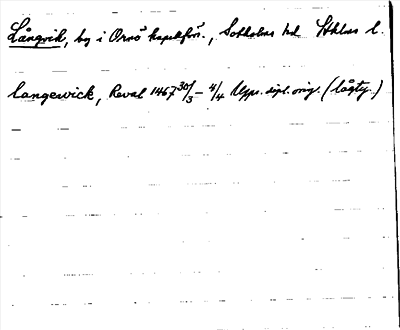 Långvik, by i Ornö kapellförs., Sotholms hd Sthlms l.
Langewick, Reval 1467 30/3 – 4/4 Upps. dipl. orig. (lågty.)